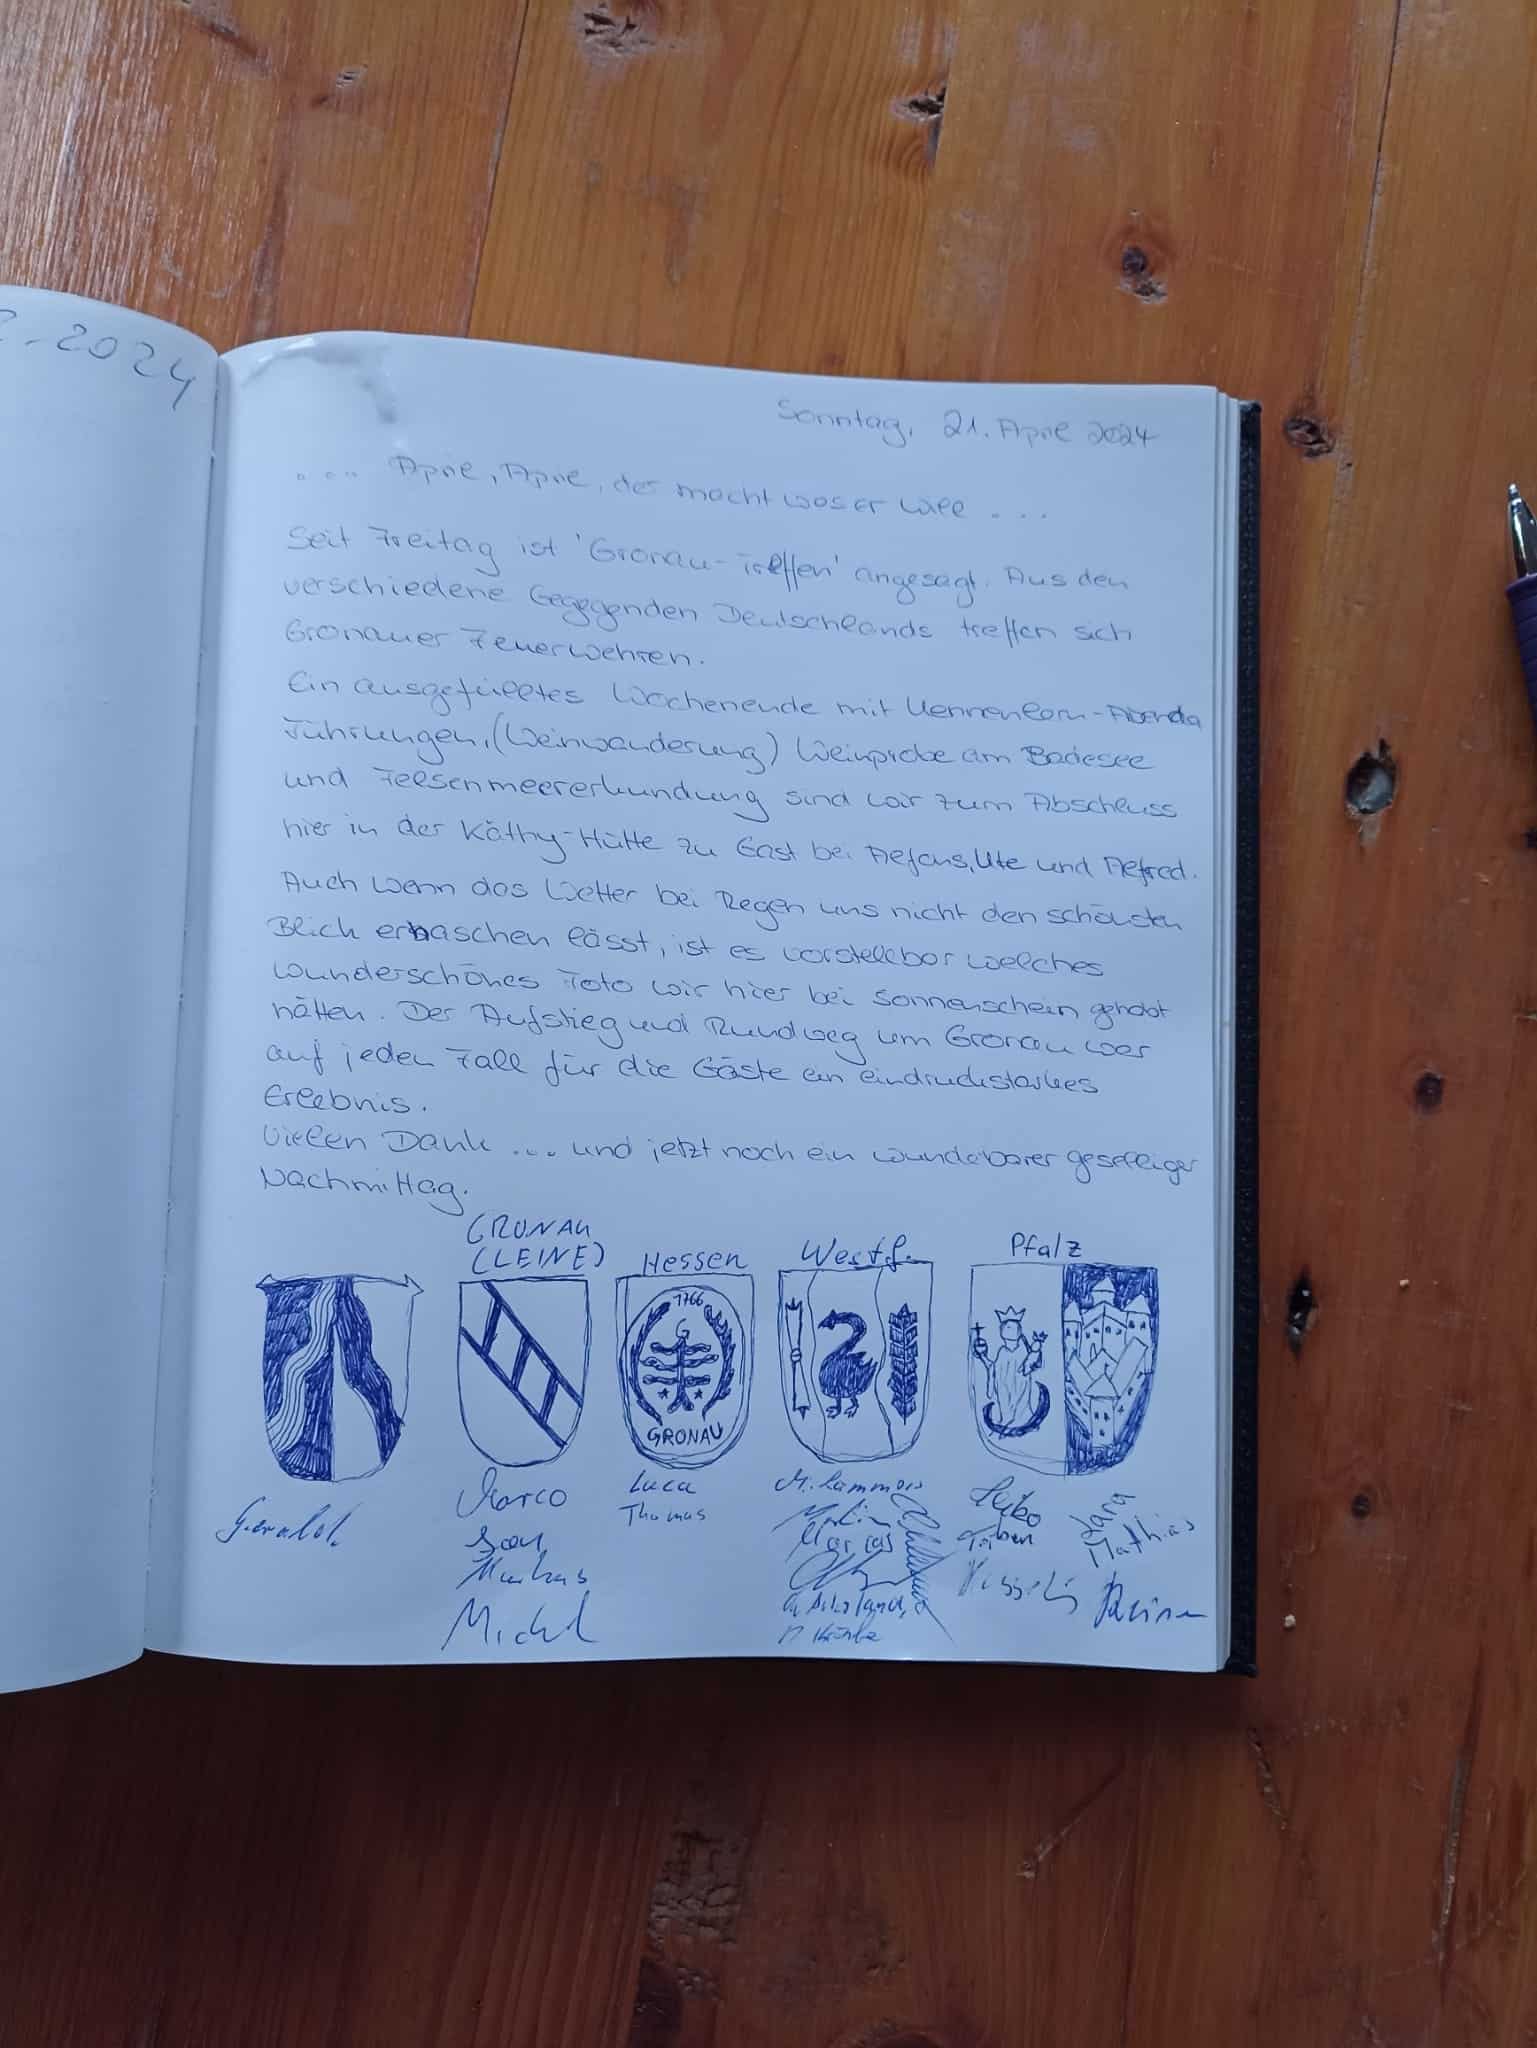 2.2024
Sonntag, 21. April 2024
.... April, April, der macht was er will ...
Seit Freitag ist 'Gronau-Treffen' angesagt. Aus den
verschiedene Gegegenden Deutschlands treffen sich
Gronauer Feuerwehren.
Ein ausgefülltes Wochenende mit Kennenlern-Abend
Führungen, (Weinwanderung) Weinprobe am Badesee
und Felsenmeererkundung sind wir zum Abschluss
hier in der Käthy-Hütte zu Gast bei Alfons, Ute und Alfred.
Auch wenn das Wetter bei Regen uns nicht den schönsten
Blick erhaschen lässt, ist es vorstellbar welches
wunderschönes Foto wir hier bei Sonnenschein gehabt
hätten. Der Aufstieg und Rundweg um Gronau war
auf jeden Fall für die Gäste ein eindruckstarkes
Erlebnis.
Vielen Dank ... und jetzt noch ein wunderbarer geselliger
Nachmittag.
GRONAU
(LEINE) Hessen Westf. Pfalz
1766
G
GRONAU
Gerald Marco Luca M. Lammers
Thomas
Jan Martin Torben Lara
Markus Marius Mathias
Michel Rainer